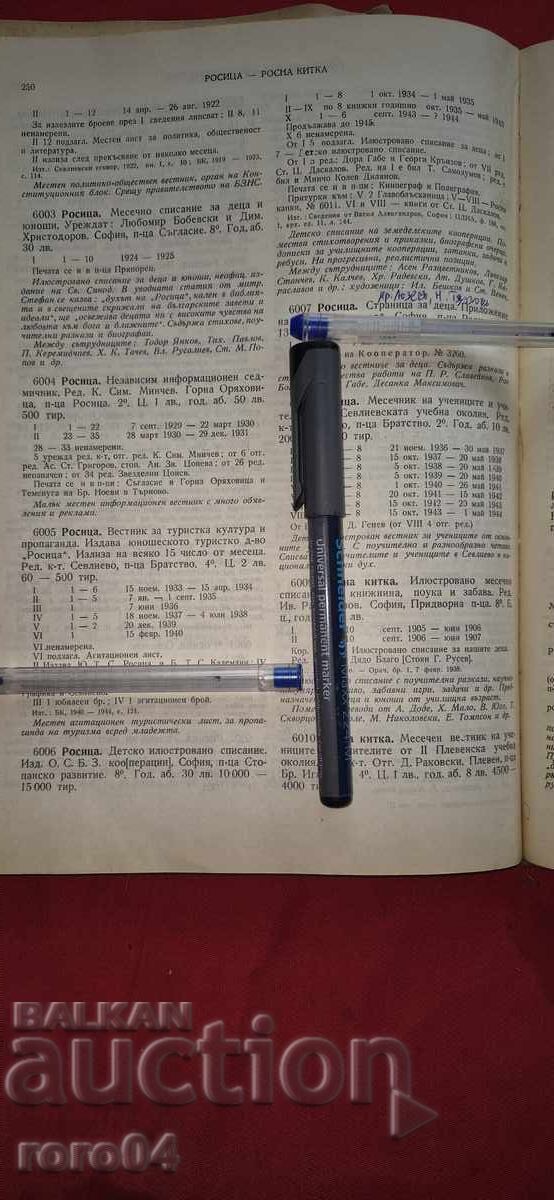 250
РОСИЦА — РОСНА КИТКА
II 1 — 12 14 апр. — 26 авг. 1922
За излезлите броеве през I сведения липсват: II 8, 11
ненамерени.
II 12 подзагл. Местен лист за политика, общественост
и литература.
II излиза след прекъсване от няколко месеца.
Изт.: Севлиевски говор, 1922, кн. I, с. 10; БК, 1919 — 1923,
с. 114.
Местен политико-обществен вестник, орган на Кон-
ституционния блок. Срещу правителството на БЗНС.
6003 Росица. Месечно списание за деца и
юноши. Уреждат: Любомир Бобевски и Дим.
Христодоров. София, п-ца Съгласие. 8°. Год. аб.
30 лв.
I 1 — 10 1924 — 1925
Печата се и в п-ца Припорец.
Илюстровано списание за деца и юноши, неофиц. из-
дание на Св. Синод. В уводната статия от митр.
Стефан се казва: „духът на „Росица“, кален в библията
и в свещените скрижали на българските завети и
идеали, ще освежава децата ни с високите чувства на
любовта към бога и ближните“. Съдържа стихове, поу-
чителни разкази и биографии.
Между сътрудниците: Тодор Янков, Тих. Павлов,
П. Керемидчиев, Х. К. Тачев, Вл. Русалиев, Ст. М. По-
пов и др.
6004 Росица. Независим информационен сед-
мичник. Ред. К. Сим. Минчев. Горна Оряхови-
ца, п-ца Росица. 2°. Ц. 1 лв., год. аб. 50 лв.
500 тир.
I 1 — 22 7 септ. 1929 — 22 март 1930
II 23 — 35 28 март 1930 — 29 дек. 1931
28 — 33 ненамерени.
5 урежда ред. к-т, отг. ред. К. Сим. Минчев; от 6 отг.
ред. Ас. Ст. Григоров, стоп. Ан. Зк. Цонева; от 26 ред.
неозначен; от 34 ред. Звезделин Цонев.
Печата се и в п-ци: Съгласие в Горна Оряховица и
Теменуга на Бр. Ноеви в Търново.
Малък местен информационен вестник с много обяв-
ления и реклами.
6005 Росица. Вестник за туристка култура и
пропаганда. Издава юношеското туристко д-во
„Росица“. Излиза на всяко 15 число от месеца.
Ред. к-т. Севлиево, п-ца Братство. 4°. Ц. 2 лв.
60 — 500 тир.
I 1 — 6 15 ноем. 1933 — 15 апр. 1934
II 1 — 5 7 ян. — 1 септ. 1935
III 1 7 юни 1936
IV 1 — 5 18 ноем. 1937 — 4 юли 1938
V 1 — 2 20 дек. 1939
VI 1 15 февр. 1940
VI ненамерена.
VI подзагл. Агитационен лист.
V Издава Ю. Т. С. Росица и Б. Т. С.
III 1 юбилеен бр.; IV 1 агитационен брой.
Изт.: БК, 1940 — 1944, с. 121.
Местен агитационен туристически лист, за пропа-
ганда на туризма всред младежта.
6006 Росица. Детско илюстровано списание.
Изд. О. С. Б. З. коо[перации]. София, п-ца Сто-
панско развитие. 8°. Год. аб. 30 лв. 10 000 —
15 000 тир.
I 1 — 8 1 окт. 1934 — 1 май 1935
II—IX по 8 книжки годишно окт. 1935 — май
X 1 — 6 септ. 1943 — ? 1944
Продължава до 1948
X 6 ненамерена.
От I 5 подзагл. Илюстровано списание за деца; от
7 — Детско илюстровано списание.
От I ред. Дора Габе и Георги Кръязов; от VII ред.
Ст. Ц. Даскалов. Ред. на I е бил Т. Самодумов; ред.
бил и Минчо Колев Далаянов.
Печата се и в п-ци: Книпеграф и Полеграфия.
Притурки към: V 2 Главобъсканица; V—VIII — Росни
капки, № 6011. VI и VIII — книги от Ст. Ц. Даскалов.
Детско списание на земеделските кооперации. По-
мества стихотворения и приказки, биографски очерци,
дописки за училищните кооперации, гатанки, задачи и
ребуси. На прогресивни, реалистични позиции.
Между сътрудниците: Асен Разцветников, Димитър
Станчев, К. Калчев, Хр. Радевски, Ат. Душков, Г. Ка-
раславов и др.; художници: Ил. Бешков и Ст. Венев.
6007 Росица. Страница за деца. Приложение
на Кооператор. № 3260.
Габе, Десанка Максимович.
Месечник на учениците и учи-
Севлиевската учебна околия. Ред.
п-ца Братство. 2°. Год. аб. 10 лв.
тир.
8 21 ноем. 1936 — 30 май 1937
8 15 окт. 1937 — 20 май 1938
8 5 окт. 1938 — 20 май 1939
8 5 окт. 1939 — 20 май 1940
8 1 окт. 1940 — 26 май 1941
8 20 окт. 1941 — 15 май 1942
8 15 окт. 1942 — 15 май 1943
8 15 окт. 1943 — 15 май 1944
Д. Генев (от VIII 4 отг. ред.)
вестник за учениците от основ-
С поучително и разнообразно четиво.
учителите и учениците в Севлиево и
духът.
китка. Илюстровано месечно
книжнина, поука и забава. Ред.
София, Придворна п-ца. 8°. Б.
10 септ. 1905 — юни 1906
10 септ. 1906 — юни 1907
Илюстровано списание за нашите деца.
Дядо Благо [Стоян Г. Русев].
— Орач, бр. 1, 7 февр. 1938.
списание с поучителни разкази, научно
забавни игри, задачи и др. Пред-
и юноши от училищна възраст.
от А. Доде, Х. Мало, В. Юго, Т.
М. Николовски, Е. Томпсон и др.
6010 китка. Месечен вестник на уче-
учителите от II Плевенска учебна
Отг. Д. Раковски. Плевен, п-ца
4°. Ц. 1 лв., год. аб. 8 лв. 4500—
4000 тир.
schneider
universal permanent marker
BALKAN
auction
roro04